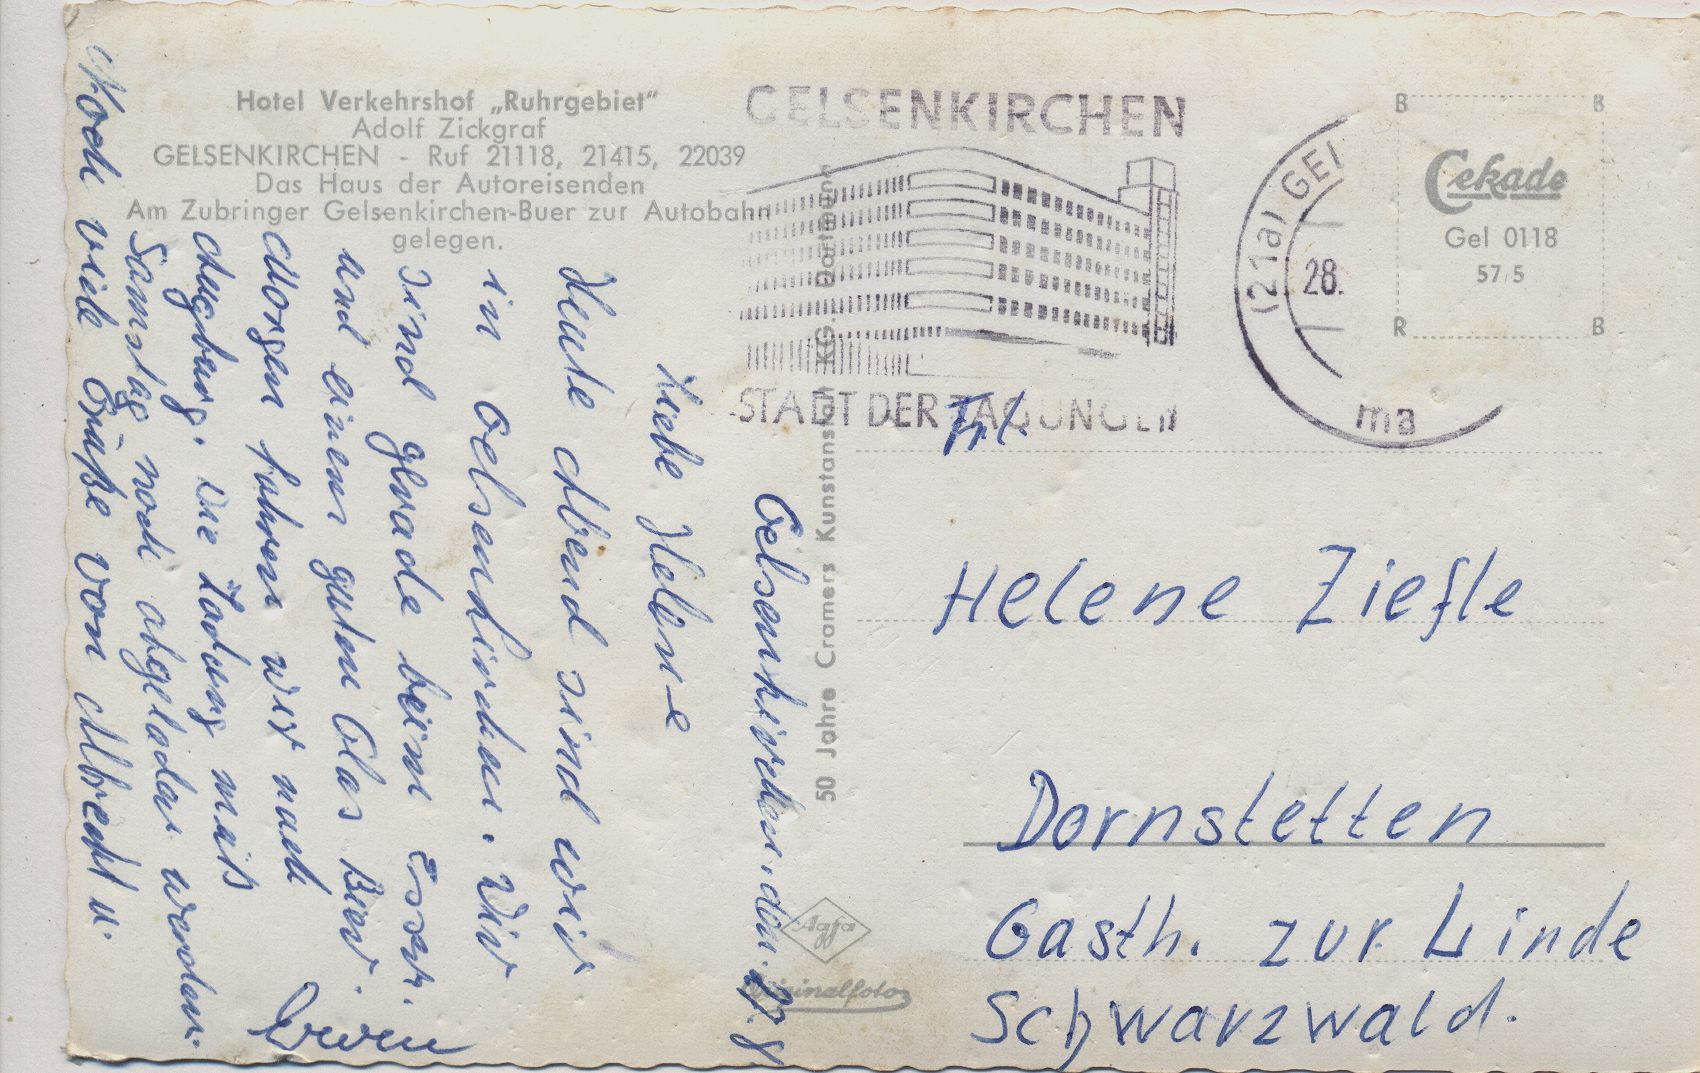 Hotel Verkehrshof „Ruhrgebiet"
Adolf Zickgraf
GELSENKIRCHEN - Ruf 21118, 21415, 22039
Das Haus der Autoreisenden
Am Zubringer Gelsenkirchen-Buer zur Autobahn
gelegen.
GELSENKIRCHEN
STADT DER TAGUNGEN
(21a) GEL
28.
ma
B B
Cekade
Gel 0118
57/5
R B
50 Jahre Cramers Kunstanstalt KG. Dortmund
Agfa
Originalfoto
Gelsenkirchen, den 27. 8
Liebe Helene
Heute Abend sind wir
in Gelsenkirchen. Wir
sind grade beim Essen.
und einem guten Glas Bier.
Morgen fahren wir nach
Augsburg. Die Ladung muß
Samstag noch abgeladen werden.
Noch viele Grüße von Albrecht u.
Erwin
Frl.
Helene Ziefle
Dornstetten
Gasth. zur Linde
Schwarzwald.